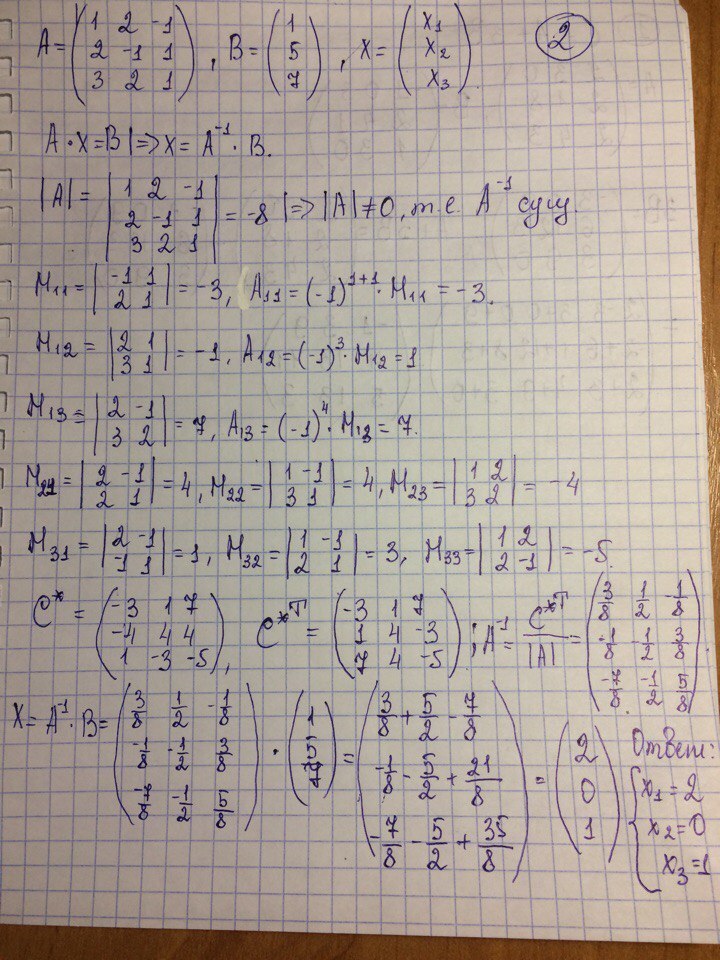 A = (1 2 -1; 2 -1 1; 3 2 1), B = (1; 5; 7), X = (x₁; x₂; x₃). 2
A · X = B |=> X = A⁻¹ · B.
|A| = |1 2 -1; 2 -1 1; 3 2 1| = -8 |=> |A| ≠ 0, т.е. A⁻¹ сущ.
M₁₁ = |-1 1; 2 1| = -3, A₁₁ = (-1)¹⁺¹ · M₁₁ = -3.
M₁₂ = |2 1; 3 1| = -1, A₁₂ = (-1)³ · M₁₂ = 1
M₁₃ = |2 -1; 3 2| = 7, A₁₃ = (-1)⁴ · M₁₃ = 7.
M₂₁ = |2 -1; 2 1| = 4, M₂₂ = |1 -1; 3 1| = 4, M₂₃ = |1 2; 3 2| = -4
M₃₁ = |2 -1; -1 1| = 1, M₃₂ = |1 -1; 2 1| = 3, M₃₃ = |1 2; 2 -1| = -5.
C* = (-3 1 7; -4 4 4; 1 -3 -5), C*ᵀ = (-3 1 7; 1 4 -3; 7 4 -5); A⁻¹ = C*ᵀ/|A| = (3/8 1/2 -1/8; -1/8 -1/2 3/8; -7/8 -1/2 5/8).
X = A⁻¹ · B = (3/8 1/2 -1/8; -1/8 -1/2 3/8; -7/8 -1/2 5/8) · (1; 5; 7) = (3/8 + 5/2 - 7/8; -1/8 - 5/2 + 21/8; -7/8 - 5/2 + 35/8) = (2; 0; 1)
Ответ:
x₁ = 2
x₂ = 0
x₃ = 1